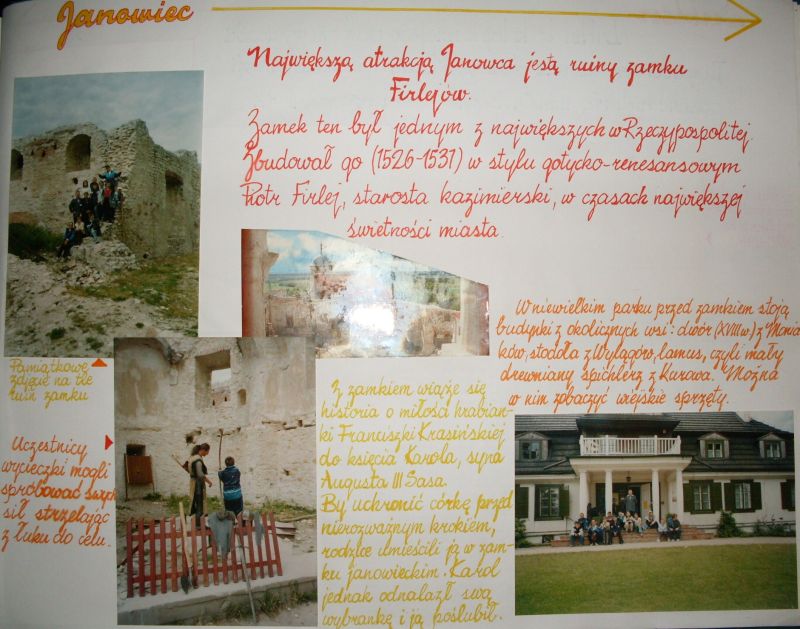 Janowiec
Największą atrakcją Janowca jestą ruiny zamku
Firlejów.
Zamek ten był jednym z największych w Rzeczypospolitej.
Zbudował go (1526-1531) w stylu gotycko-renesansowym
Piotr Firlej, starosta kazimierski, w czasach największej
świetności miasta.
Pamiątkowe
zdjęcie na tle
ruin zamku
Uczestnicy
wycieczki mogli
spróbować swych
sił strzelając
z łuku do celu.
Z zamkiem wiąże się
historia o miłości hrabian-
ki Franciszki Krasińskiej
do księcia Karola, syna
Augusta III Sasa.
By uchronić córkę przed
nierozważnym krokiem,
rodzice umieścili ją w zam-
ku janowieckim. Karol
jednak odnalazł swą
wybrankę i ją poślubił.
W niewielkim parku przed zamkiem stoją
budynki z okolicznych wsi: dwór (XVIII w.) z Moniak
ków, stodoła z Wylągów, lamus, czyli mały
drewniany spichlerz z Kurowa. Można
w nim zobaczyć wiejskie sprzęty.